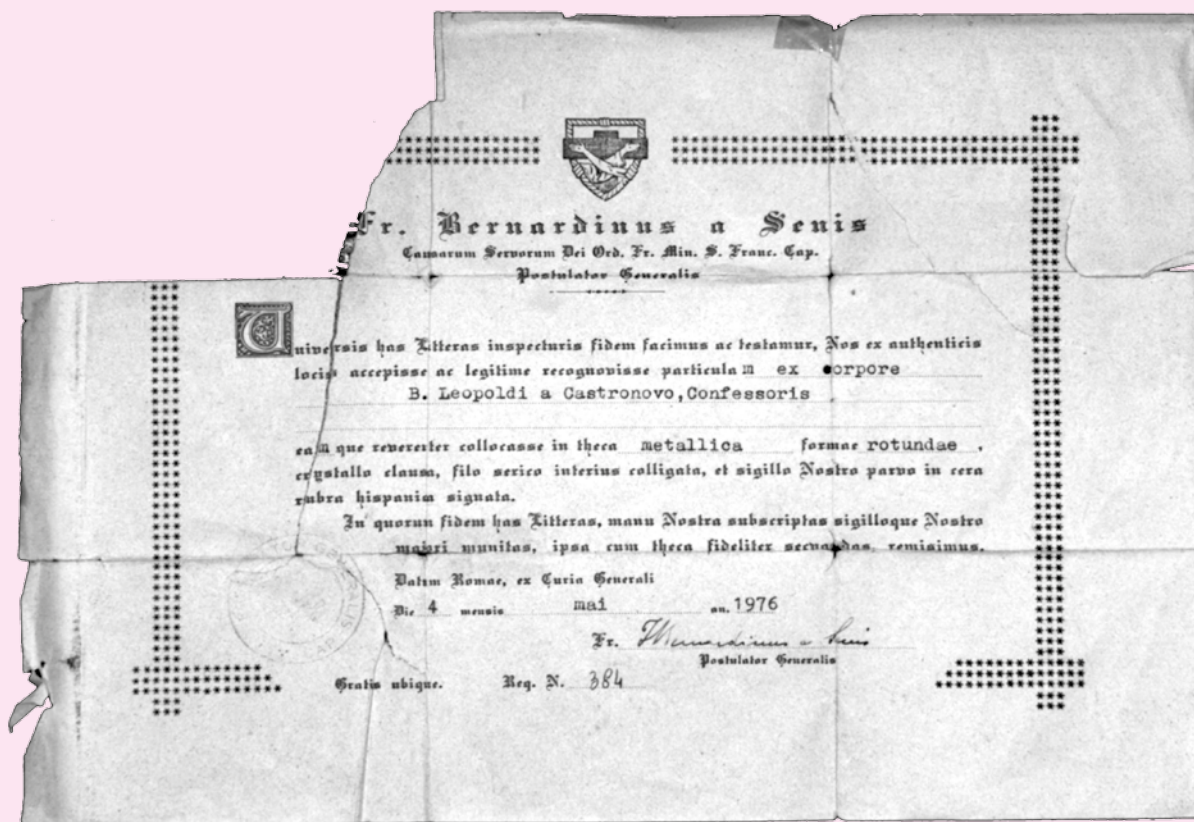 Fr. Bernardinus a Senis
Causarum Servorum Dei Ord. Fr. Min. S. Franc. Cap.
Postulator Generalis
Universis has Litteras inspecturis fidem facimus ac testamur, Nos ex authenticis
locis accepisse ac legitime recognovisse particulam ex corpore
B. Leopoldi a Castronovo, Confessoris
eam que reverenter collocasse in theca metallica formae rotundae,
crystallo clausa, filo serico interius colligata, et sigillo Nostro parvo in cera
rubra hispania signata.
In quorun fidem has Litteras, manu Nostra subscriptas sigilloque Nostro
maiori munitas, ipsa cum theca fideliter secuandas, remisimus.
Datum Romae, ex Curia Generali
Die 4 mensis mai an. 1976
Fr. FBernardinus a Senis
Postulator Generalis
Gratis ubique. Reg. N. 384